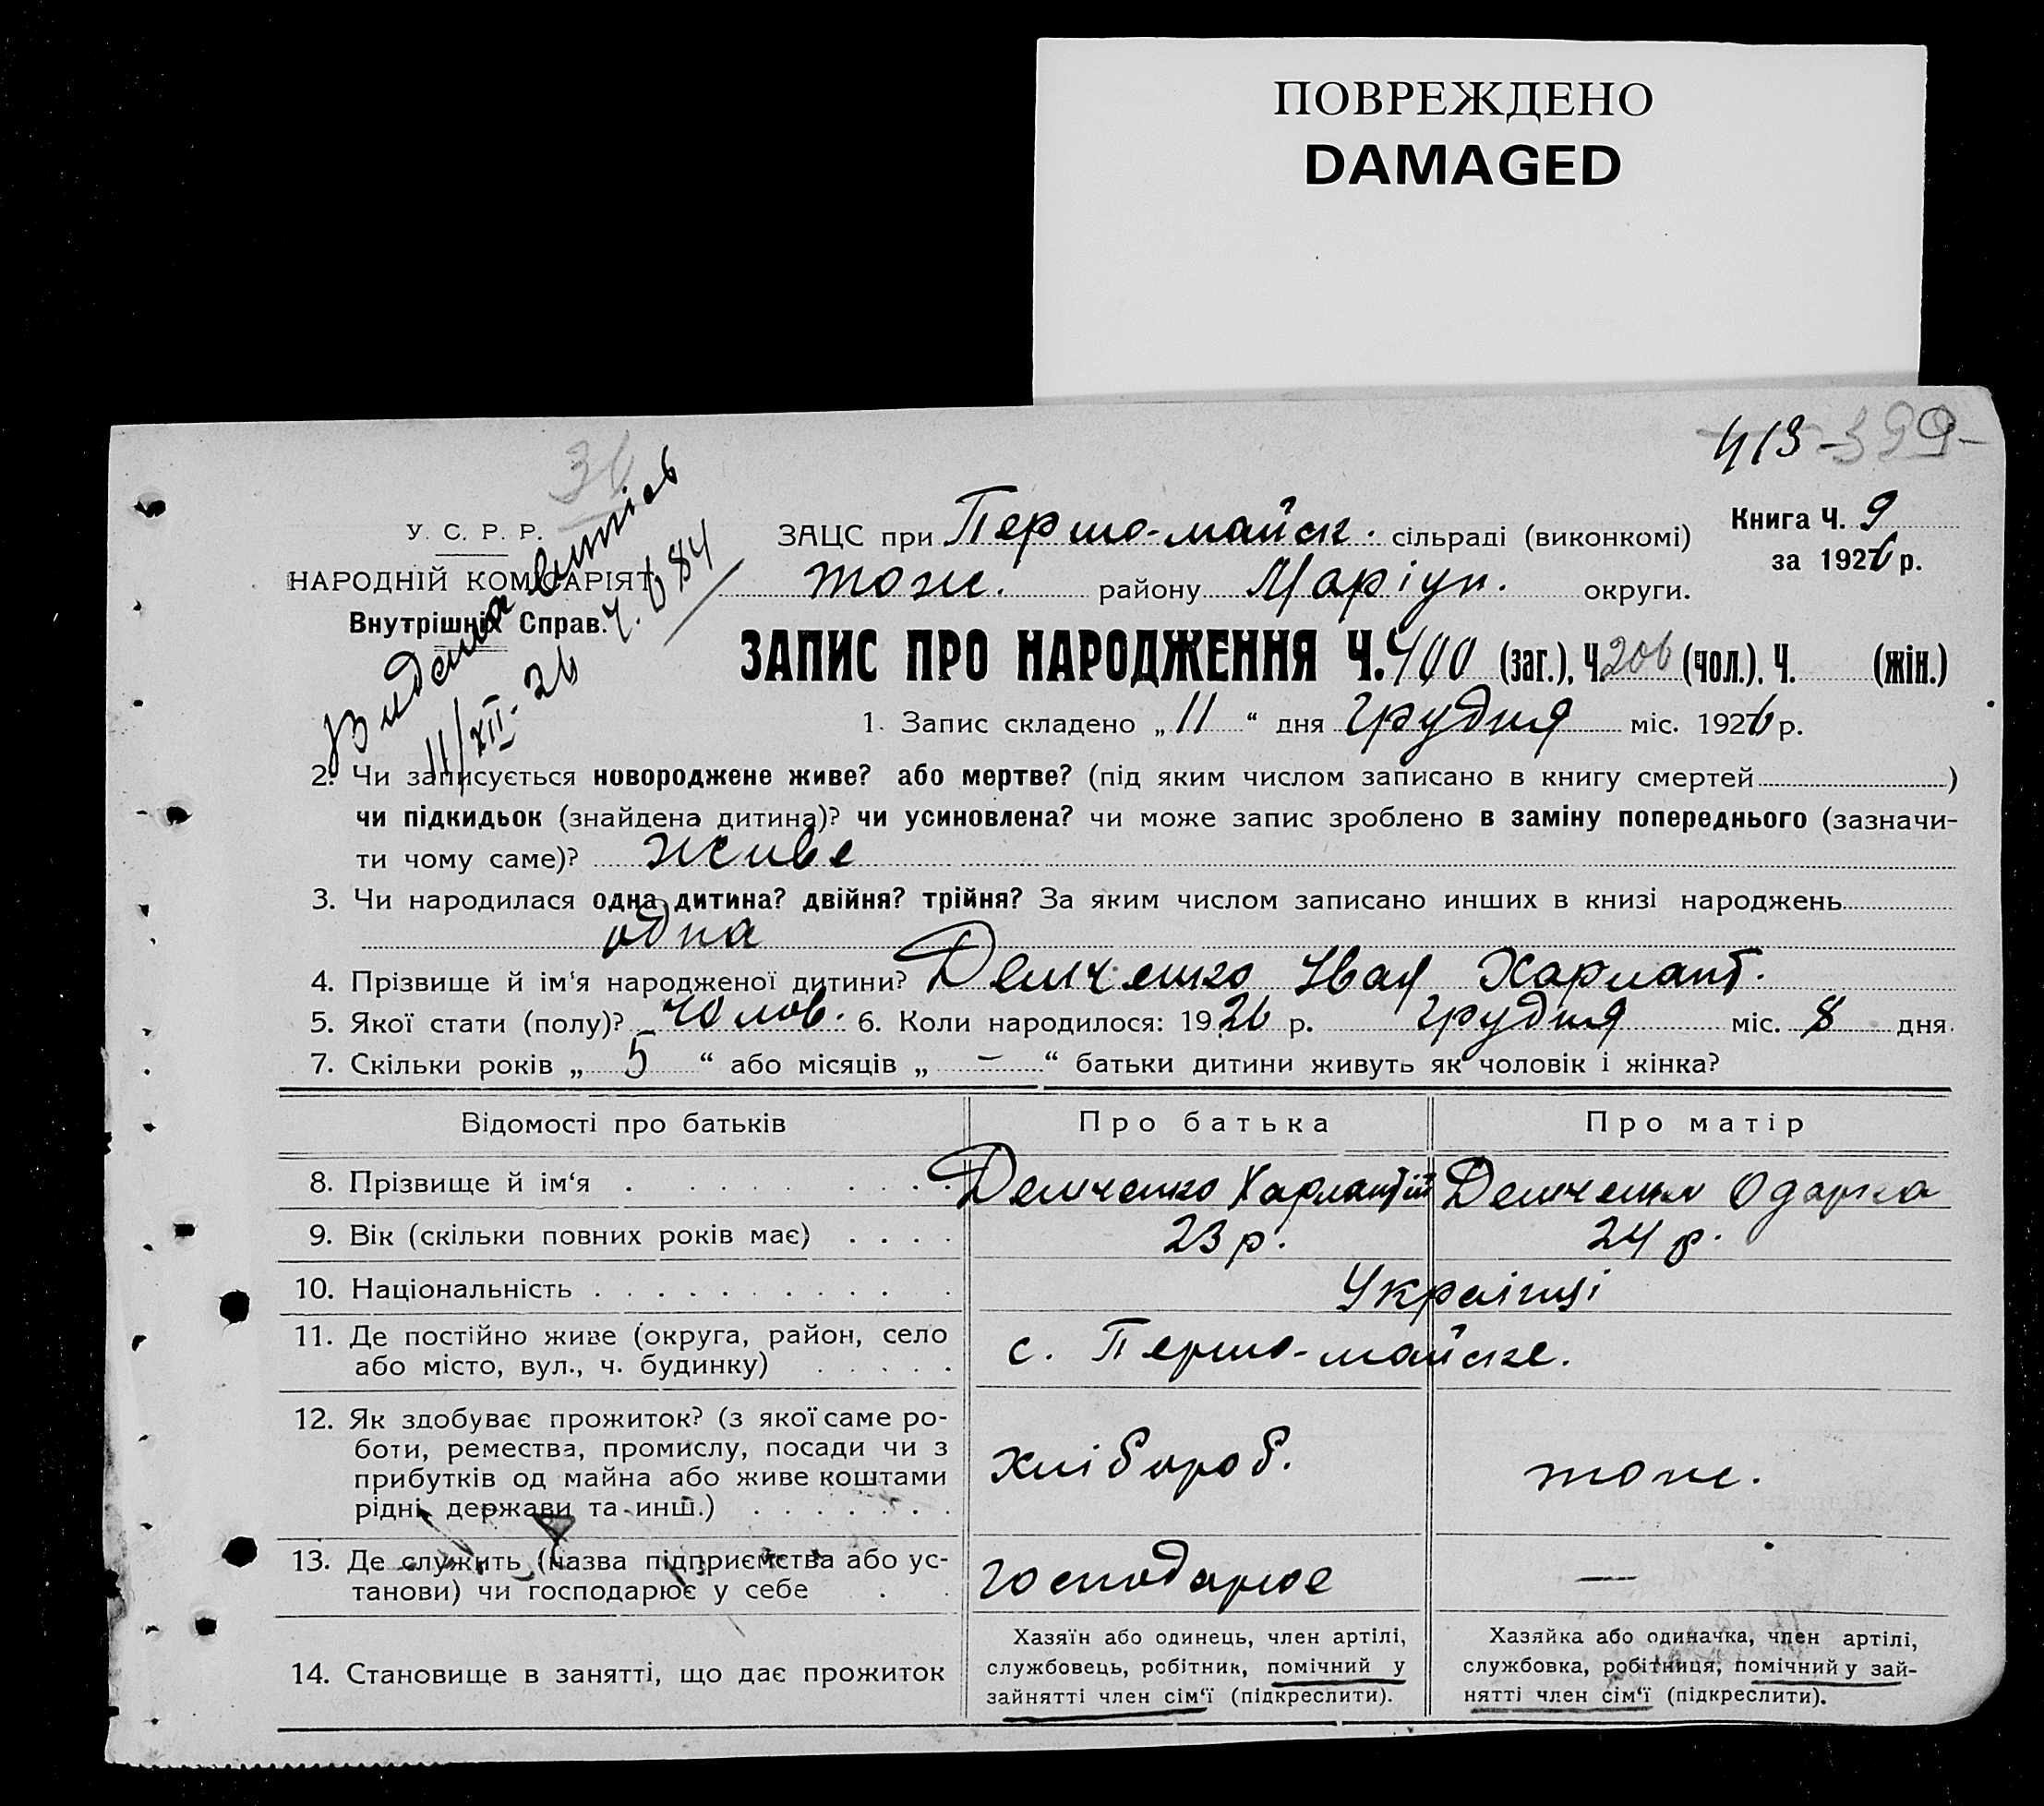 ПОВРЕЖДЕНО
DAMAGED
413 - 399 -
У. С. Р. Р.
НАРОДНІЙ КОМІСАРІЯТ
Внутрішніх Справ.
Видана витпісь
11/XII- 26 ч. 684
ЗАЦС при Першо-майск. сільраді (виконкомі)
Книга Ч. 9
за 1926 р.
тож. району Маріуп. округи.
ЗАПИС ПРО НАРОДЖЕННЯ Ч. 400 (заг.), Ч. 206 (чол.), Ч. (жін.)
1. Запис складено „ 11 “ дня грудня міс. 1926 р.
2. Чи записується новороджене живе? або мертве? (під яким числом записано в книгу смертей )
чи підкидьок (знайдена дитина)? чи усиновлена? чи може запис зроблено в заміну попереднього (зазначи-
ти чому саме)? живе
3. Чи народилася одна дитина? двійня? трійня? За яким числом записано инших в книзі народжень
одна
4. Прізвище й ім‘я народженої дитини? Демченко Іван Харламп.
5. Якої стати (полу)? чолов. 6. Коли народилося: 1926 р. грудня міс. 8 дня.
7. Скільки років „ 5 “ або місяців „ – “ батьки дитини живуть як чоловік і жінка?
Відомості про батьків Про батька Про матір
8. Прізвище й ім‘я . . . . . . . . Демченко Харлампій Демченко Одарка
9. Вік (скільки повних років має) . . . . 23 р. 24 р.
10. Національність . . . . . . . . . . Українці
11. Де постійно живе (округа, район, село
або місто, вул., ч. будинку) . . . . . с. Першо-майске.
12. Як здобуває прожиток? (з якої саме ро-
боти, ремества, промислу, посади чи з
прибутків од майна або живе коштами
рідні, держави та инш.) . . . . . . .
хлібороб. тож.
13. Де служить (назва підприємства або ус-
танови) чи господарює у себе . .
господарює —
14. Становище в занятті, що дає прожиток
Хазяїн або одинець, член артілі,
службовець, робітник, помічний у
зайнятті член сім‘ї (підкреслити).
Хазяйка або одиначка, член артілі,
службовка, робітниця, помічний у зай-
нятті член сім‘ї (підкреслити).